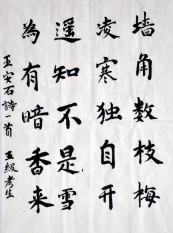 墙角数枝梅
凌寒独自开
遥知不是雪
為有暗香来
王安石詩一首 五级考生